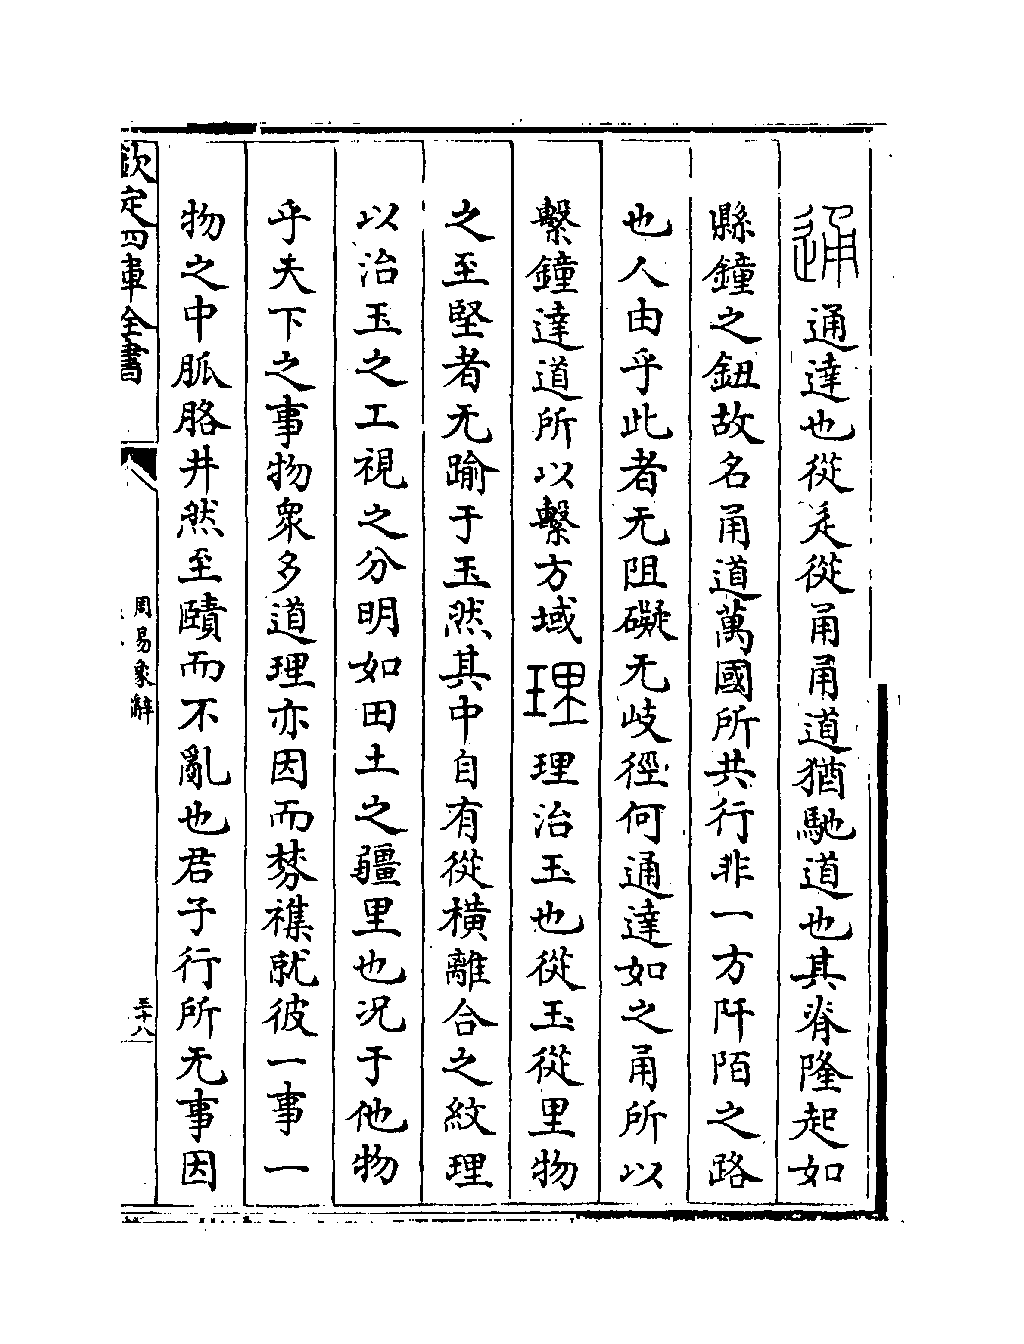 通通達也從辵從甬甬道猶馳道也其脊隆起如
縣鐘之鈕故名甬道萬國所共行非一方阡陌之路
也人由乎此者无阻礙无岐徑何通達如之甬所以
繫鐘達道所以繫方域理理治玉也從玉從里物
之至堅者无踰于玉然其中自有從橫離合之紋理
以治玉之工視之分明如田土之疆里也况于他物
乎夫下之事物衆多道理亦因而棼襍就彼一事一
物之中脈胳井然至賾而不亂也君子行所无事因
欽定四庫全書
周易象辭
三十八